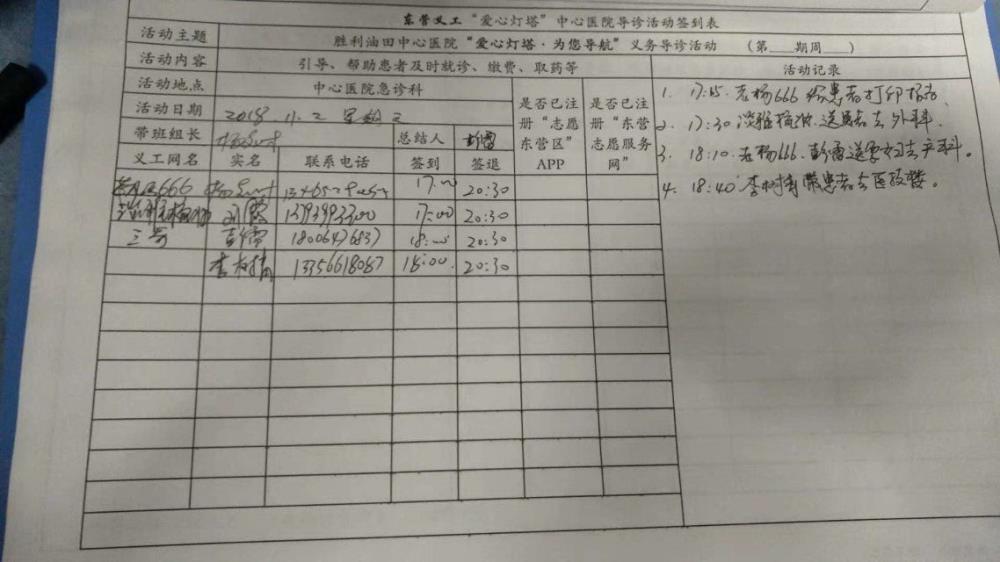 东营义工“爱心灯塔”中心医院导诊活动签到表
活动主题 胜利油田中心医院“爱心灯塔·为您导航”义务导诊活动 （第___期周___）
活动内容 引导、帮助患者及时就诊、缴费、取药等 活动记录
活动地点 中心医院急诊科 是否已注册“志愿东营区”APP 是否已注册“东营志愿服务网”
活动日期 2018 11. 2
带班组长 总结人 彭雷
义工网名 实名 联系电话 签到 签退
666 17:00 20:30
13793993300 17:00 20:30
三哥 彭雷 18006476837 18:00 20:30
李树清 13356618087 18:00 20:30
1. 17:15. 老杨666 患者打印报告.
2. 17:30 送患者去外科.
3. 18:10. 老杨666. 彭雷送 去产科。
4. 18:40 李树清带患者去医技楼。